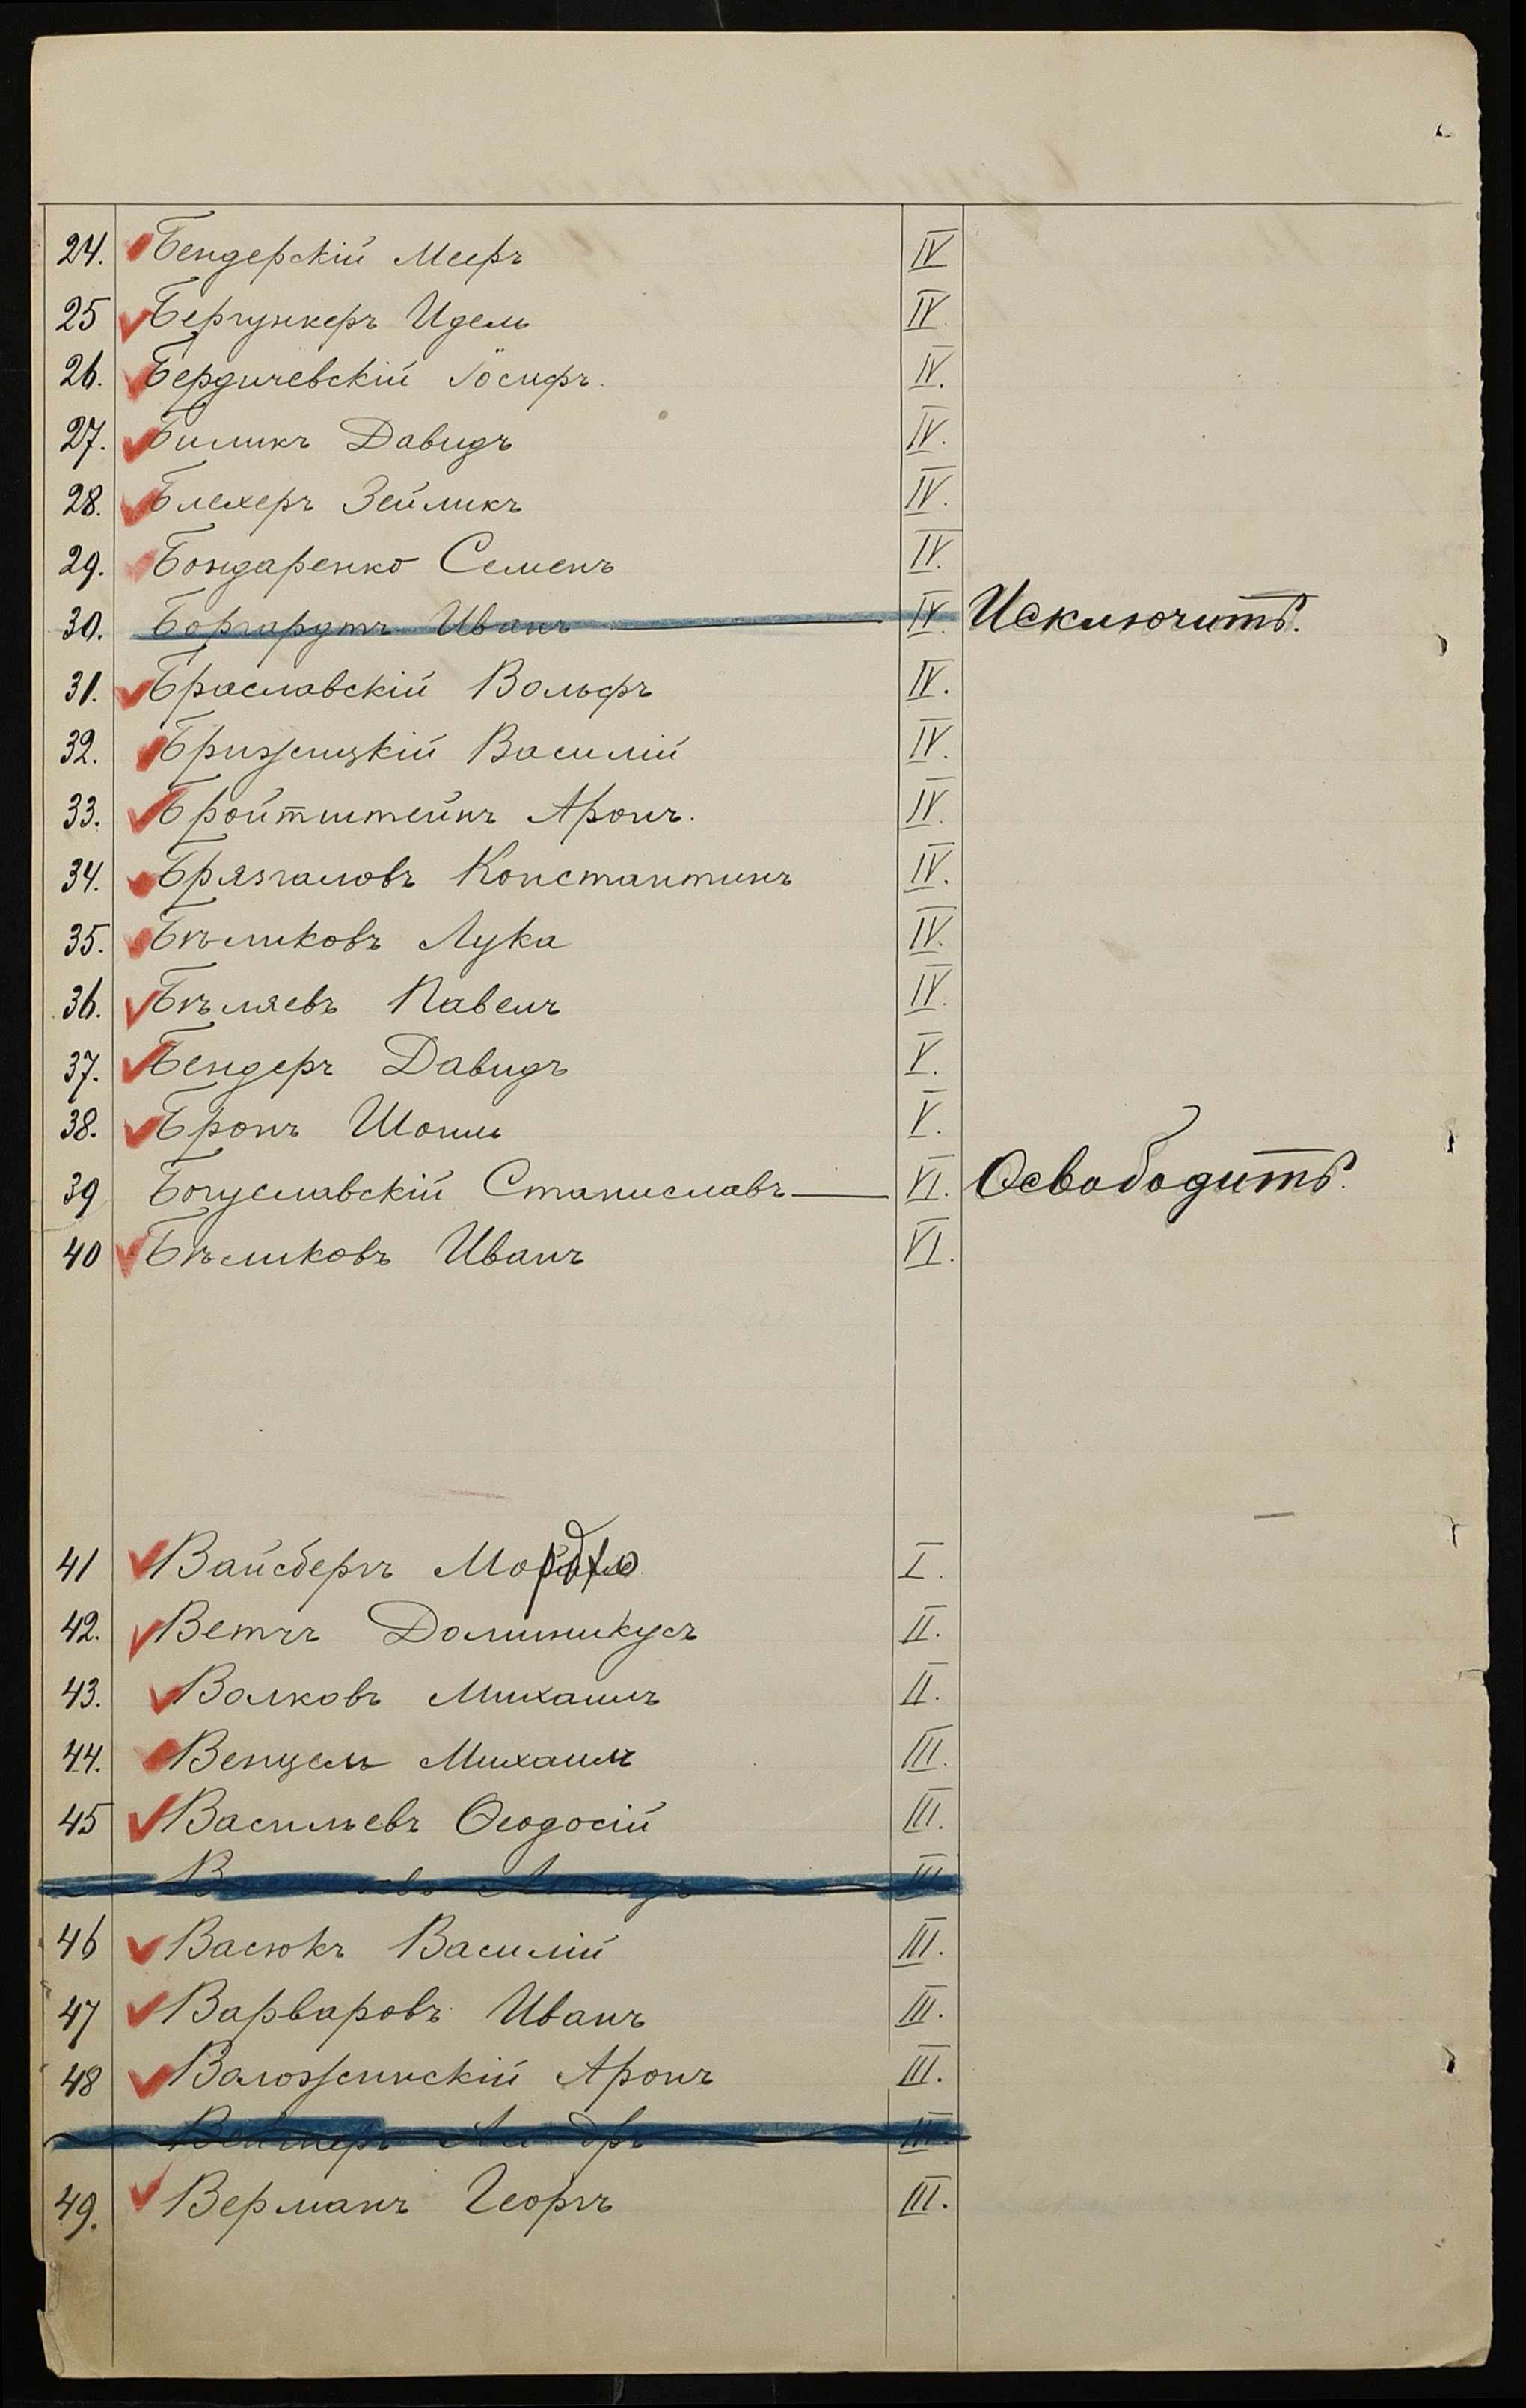 24. Бендерскій Мееръ IV
25 Бергункеръ Идель IV.
26. Бердичевскій Іосифъ. IV.
27. Биликъ Давидъ IV.
28. Блехеръ Зейликъ IV.
29. Бондаренко Семенъ IV.
30. Боргардтъ Иванъ IV. Исключить.
31. Браславскій Вольфъ IV.
32. Брижицкій Василій IV.
33. Бройтштейнъ Аронъ. IV.
34. Брязгаловъ Константинъ IV.
35. Бѣликовъ Лука IV.
36. Бѣляевъ Павелъ IV.
37. Бендеръ Давидъ V.
38. Бронъ Шопшъ V.
39 Богуславскій Станиславъ VI. Освободить.
40 Бѣликовъ Иванъ VI.
41 Вайсбергъ Мордхо I.
42. Ветчъ Доминикусъ II.
43. Волковъ Михаилъ II.
44. Венцель Михаилъ III.
45 Васильевъ Ѳеодосій III.
III
46 Васюкъ Василій III.
47 Варваровъ Иванъ III.
48 Воложинскій Аронъ III.
III.
49. Верманъ Георгъ III.